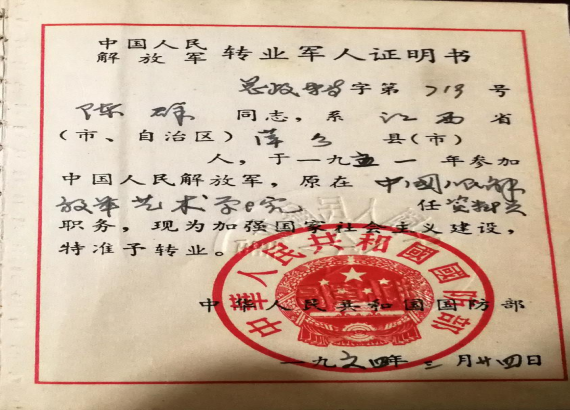 中国人民
解放军 转业军人证明书
总政字第 713 号
陈 同志，系 江西 省
（市、自治区） 萍乡 县（市）
人，于一九五一年参加
中国人民解放军，原在 中国人民解
放军艺术学院 任 资料员
职务，现为加强国家社会主义建设，
特准予转业。
中华人民共和国国防部
中華人民共和國國防部
一九六四年三月廿四日